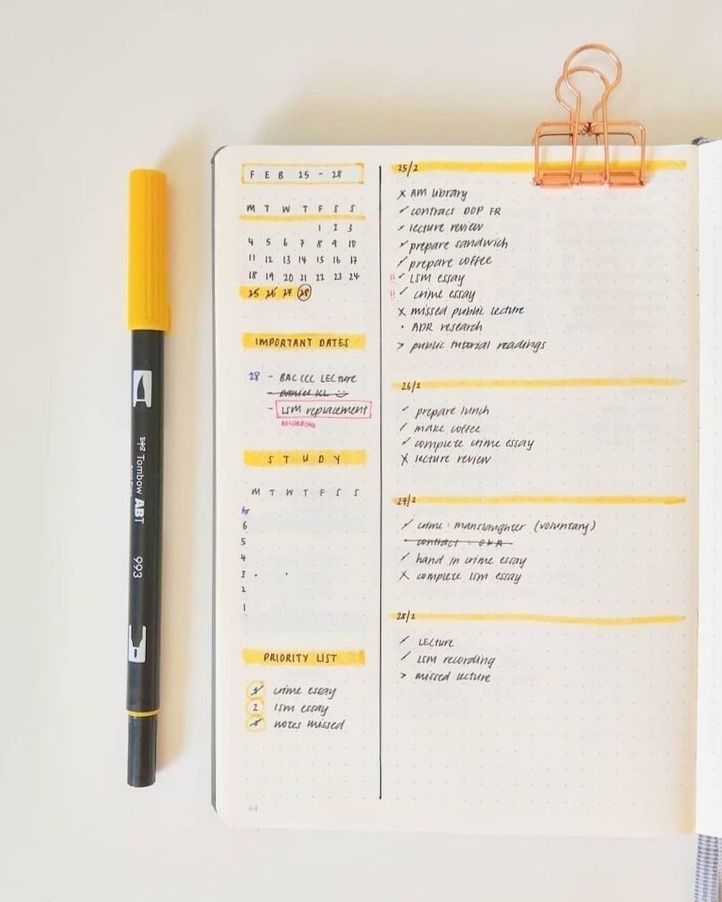 FEB 25 - 28
M T W T F S S
1 2 3
4 5 6 7 8 9 10
11 12 13 14 15 16 17
18 19 20 21 22 23 24
25 26 27 28
IMPORTANT DATES
28 - BAC LEC LECTURE
- DANIEL KL
- LSM replacement
RECORDING
STUDY
M T W T F S S
hr
6
5
4
3
2
1
PRIORITY LIST
1 crime essay
2 lsm essay
3 notes missed
64
25/2
x AM library
✓ contract DOP FR
✓ lecture review
✓ prepare sandwich
✓ prepare coffee
!! ✓ LSM essay
!! ✓ crime essay
x missed public lecture
• ADR research
> public tutorial readings
26/2
✓ prepare lunch
✓ make coffee
✓ complete crime essay
x lecture review
27/2
✓ crime: manslaughter (voluntary)
contract:
✓ hand in crime essay
x complete lsm essay
28/2
✓ LECTURE
✓ LSM recording
> missed lecture
Tombow ABT
993